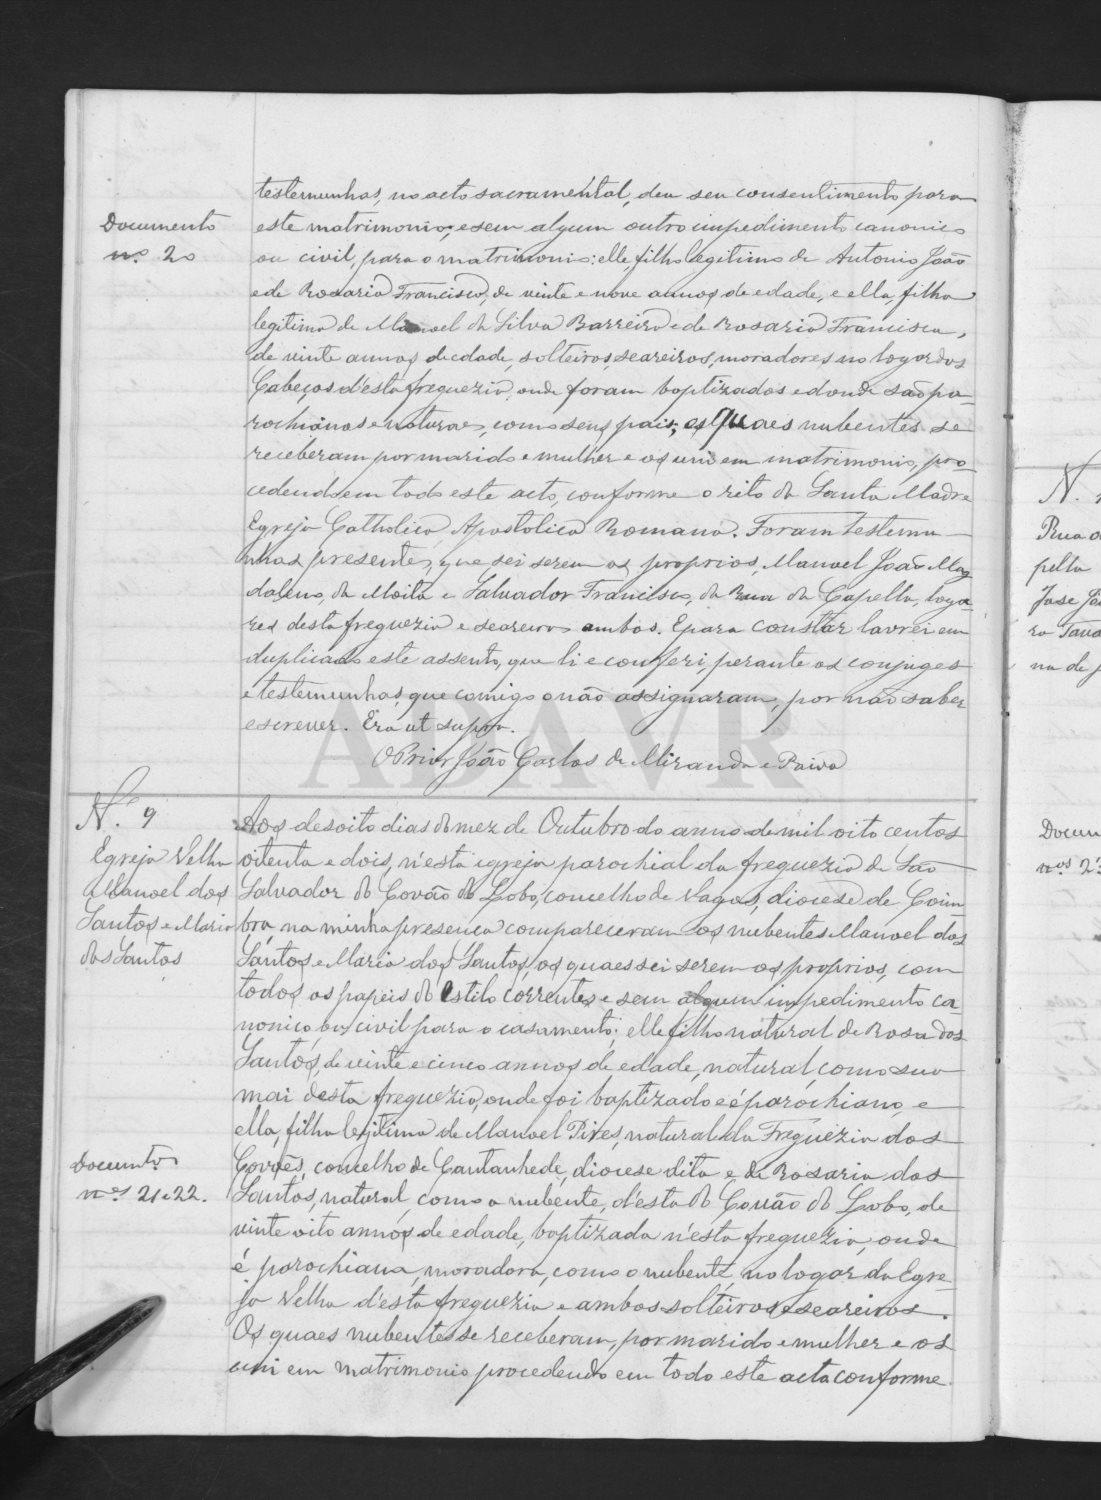 testemunhas, no acto sacramental, deu seu consentimento para
este matrimonio; e sem algum outro impedimento canonico
ou civil, para o matrimonio: elle, filho legitimo de Antonio João
e de Rosaria Francisca, de vinte e nove annos de edade, e ella, filha
legitima de Manoel da Silva Barreiro e de Rosaria Francisca,
de vinte annos de edade, solteiros, seareiros, moradores no logar dos
Cabeços d'esta freguezia, onde foram baptizados e donde são pa-
rochianos e naturaes, como seus pais; os quaes nubentes se
receberam por marido e mulher e os uni em matrimonio, pro-
cedendo em todo este acto, conforme o rito da Santa Madre
Egreja Catholica, Apostolica Romana. Foram testemu-
nhas presentes, que sei serem os proprios, Manoel João Mag
daleno, da Moita e Salvador Francisco, da Rua da Capella, loga-
res desta freguezia e seareiros ambos. E para constar lavrei em
duplicado este assento, que li e conferi, perante os conjuges
e testemunhas, que comigo o não assignaram, por não saber
escrever. Era ut supra.
O Prior João Carlos de Miranda e Paiva
Documento
nº. 20
Nº. 9
Egreja Velha
Manoel dos
Santos e Maria
dos Santos
Aos desoito dias do mez de Outubro do anno de mil oito centos
oitenta e dois, n'esta egreja parochial da freguezia de São
Salvador do Covão do Lobo, concelho de Vagos, diocese de Coim
bra, na minha presença compareceram os nubentes Manoel dos
Santos e Maria dos Santos, os quaes sei serem os proprios, com
todos os papeis do estilo correntes e sem algum impedimento ca
nonico, ou civil para o casamento; elle filho natural de Rosa dos
Santos, de vinte e cinco annos de edade, natural, como sua
mai desta freguezia, onde foi baptizado e é parochiano, e
ella, filha legitima de Manoel Pires, natural da Freguezia dos
Covões, concelho de Cantanhede, diocese dita e de Rosaria dos
Santos, natural, como a nubente, d'esta do Covão do Lobo, de
vinte oito annos de edade, baptizada n'esta freguezia, onde
é parochiana, moradora, como o nubente, no logar da Egre-
ja Velha d'esta freguezia e ambos solteiros e seareiros.
Os quaes nubentes se receberam, por marido e mulher e os
uni em matrimonio procedendo em todo este acto conforme
Documentos
nos 21 e 22.
ADAVR
N.
Rua d
pella
José Jo
ro Tava
na de J
Docum
nos 23